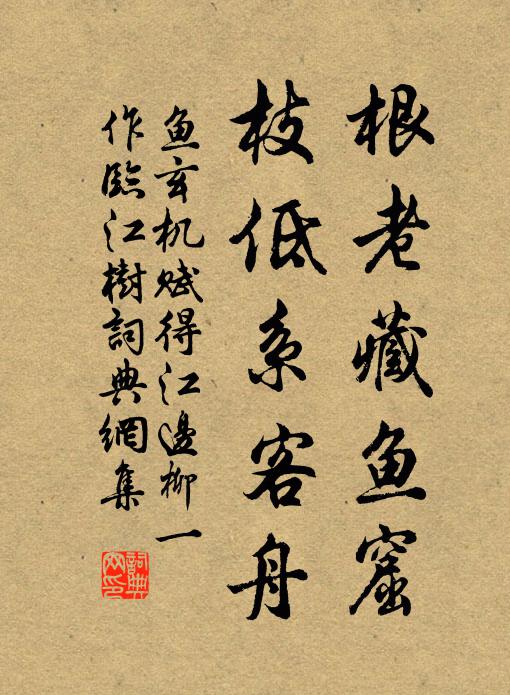 根老藏鱼窟
枝低系客舟
鱼玄机赋得江邊柳一
作臨江樹詞典網集
詞典
网印